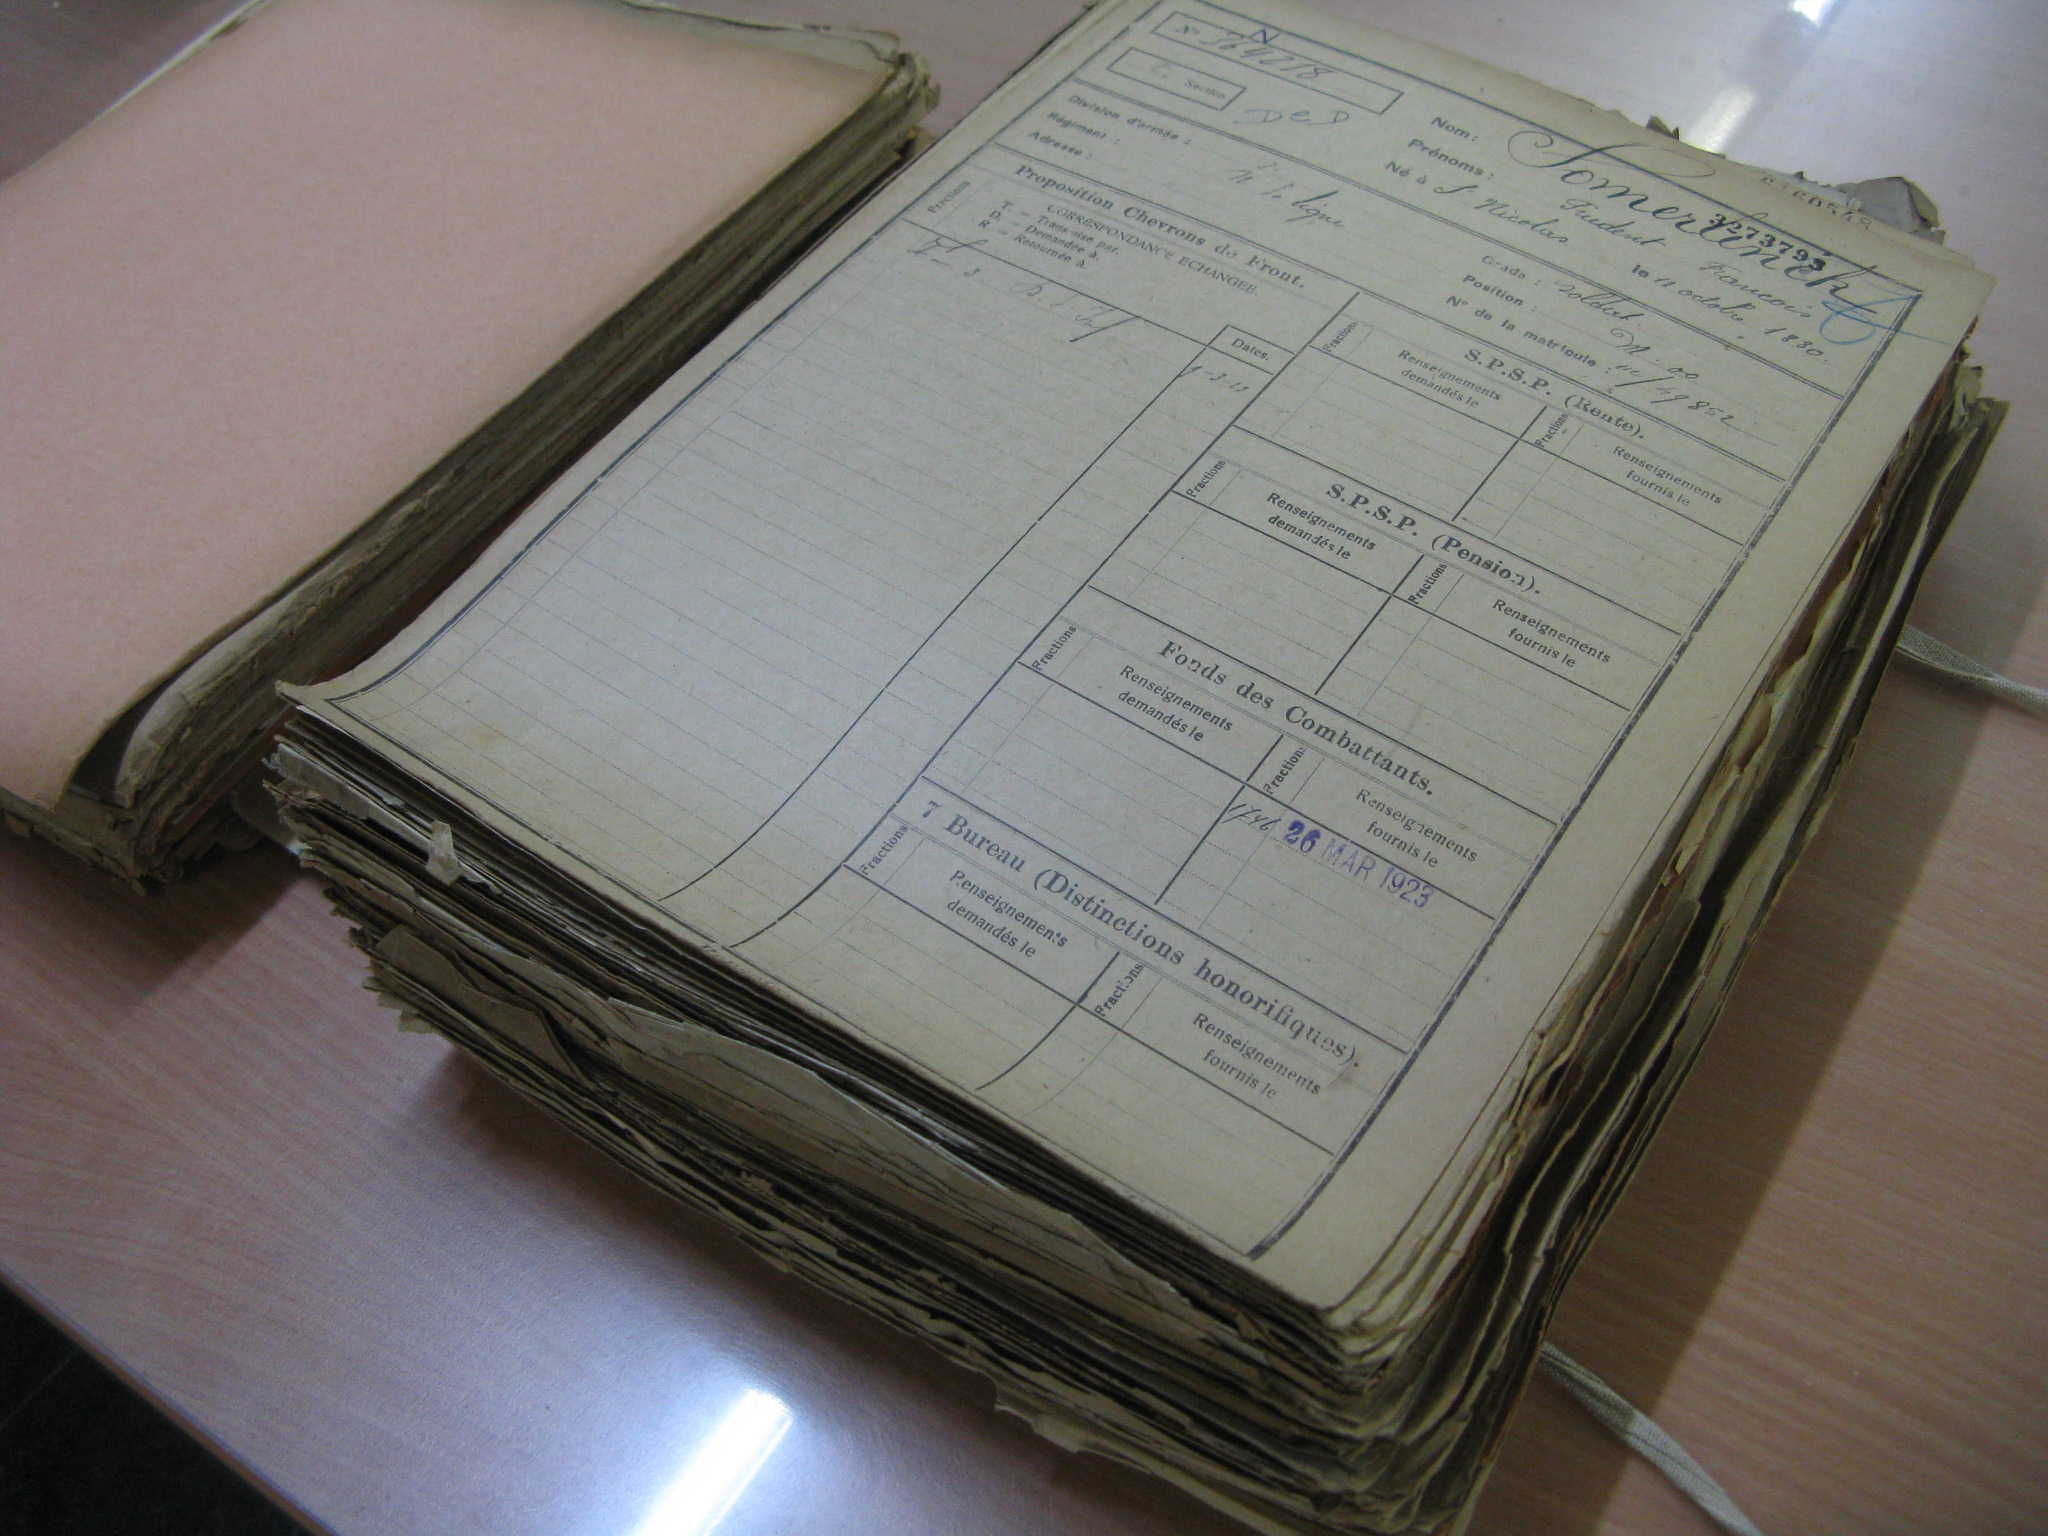 N
N° 564218
Section
D e D
Nom: Somerlinck
3273793
Prénoms: Prudent François
Né à St Nicolas le 11 octobre 1880.
Division d'armée :
Régiment :
Adresse :
de ligne
Grade : Soldat
Position :
N° de la matricule : 111/49852
Proposition Chevrons de Front.
Fractions
CORRESPONDANCE ECHANGEE.
T. — Transmise par.
D. — Demandée à.
R. — Retournée à.
Dates.
S.P.S.P. (Rente).
Fractions
Renseignements
demandés le
Fractions
Renseignements
fournis le
S.P.S.P. (Pension).
Fractions
Renseignements
demandés le
Fractions
Renseignements
fournis le
Fonds des Combattants.
Fractions
Renseignements
demandés le
Fractions
Renseignements
fournis le
1746 26 MAR 1923
7 Bureau (Distinctions honorifiques).
Fractions
Renseignements
demandés le
Fractions
Renseignements
fournis le